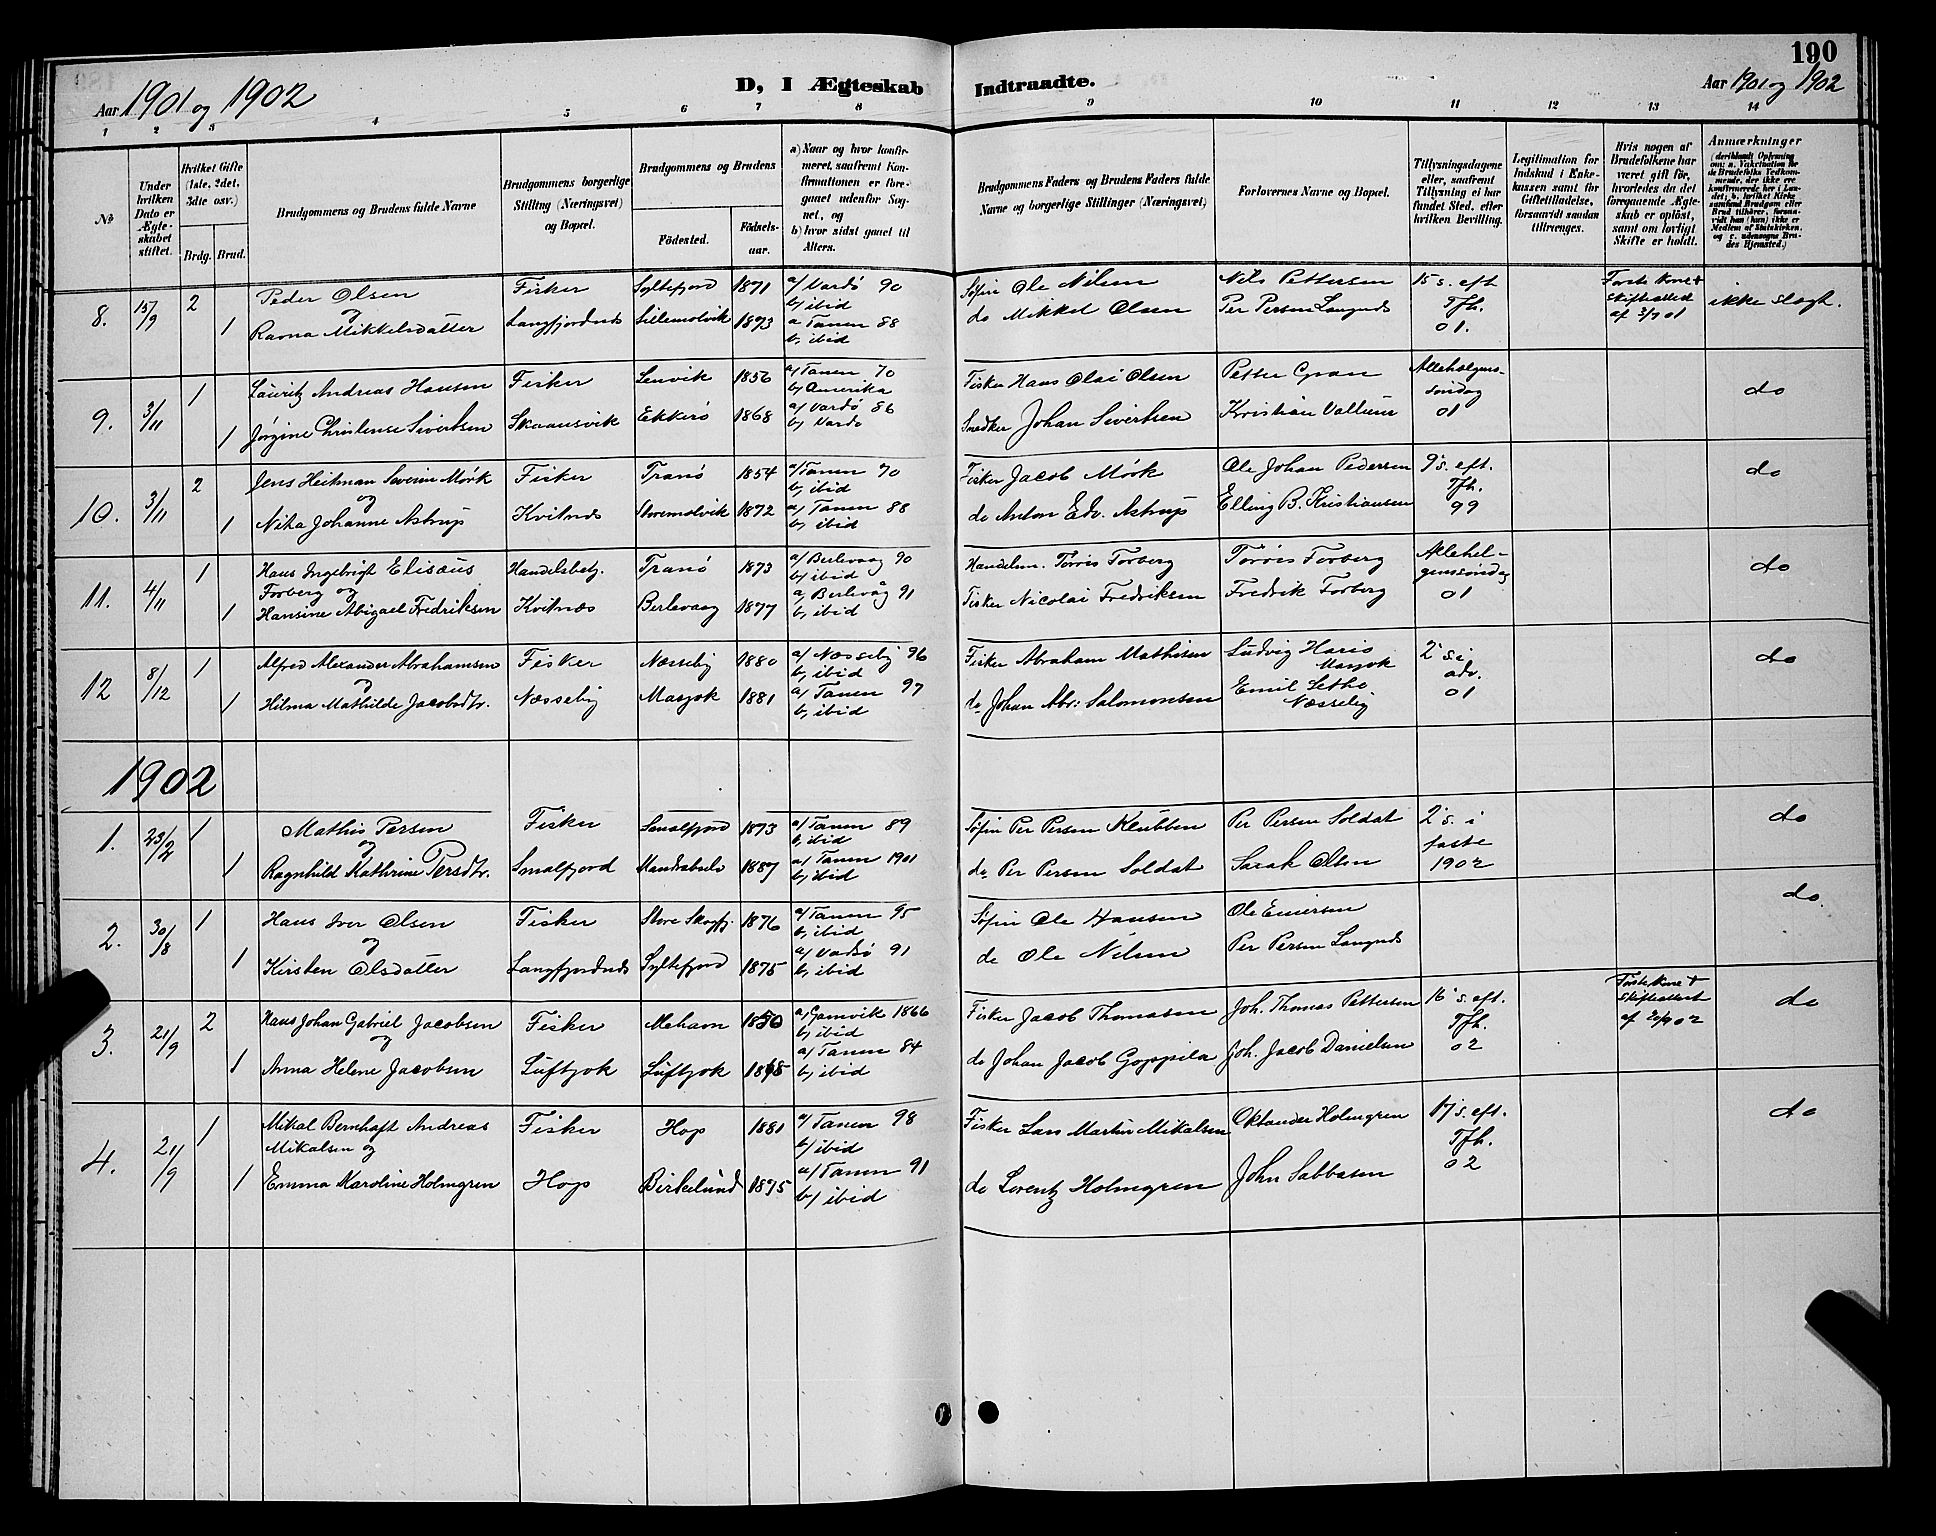 190
Aar 1901 og 1902
D, I Ægteskab Indtraadte.
Aar 1901 og 1902
1 2 3 4 5 6 7 8 9 10 11 12 13 14
No
Under hvilken Dato er Ægteskabet stiftet.
Hvilket Gifte (1ste, 2det, 3die osv.)
Brdg. Brud.
Brudgommens og Brudens fulde Navne
Brudgommens borgerlige Stilling (Næringsvei) og Bopæl.
Brudgommens og Brudens
Fødested.
Fødselsaar.
a) Naar og hvor konfirmeret, saafremt Konfirmationen er foregaaet udenfor Sognet, og
b) hvor sidst gaaet til Alters.
Brudgommens Faders og Brudens Faders fulde Navne og borgerlige Stillinger (Næringsvei)
Forlovernes Navne og Bopæl.
Tillysningsdagene eller, saafremt Tillysning ei har fundet Sted, efter hvilken Bevilling.
Legitimation for Indskud i Enkekassen samt for Giftetilladelse, forsaavidt saadan tiltrænges.
Hvis nogen af Brudefolkene har været gift før, hvorledes da det foregaaende Ægteskab er opløst, samt om lovligt Skifte er holdt.
Anmærkninger
8. 15/9 2 Peder Olsen Fisker Syltefjord 1871 a/ Vardø 90 b/ ibid Søfin Ole Nilsen Nils Pettersen 15 s. eft Tfh. 01. Første Kone † Skifteattest af 3/9 01 ikke slægt.
og
1 Ravna Mikkelsdatter Langfjordnes Lillemolvik 1873 a Tanen 88 b, ibid do Mikkel Olsen Per Persen Langnes
9. 3/11 1 Lauritz Andreas Hansen Fisker Lenvik 1856 a/ Tanen 70 b/ Amerika Fisker Hans Olai Olsen Petter Gran Allehelgenssøndag 01 do
1 Jørgine Christense Sivertsen Skaansvik Ekkerø 1868 a/ Vardø 86 b/ Vardø Snedker Johan Sivertsen Kristian
10. 3/11 2 Jens Heitman Severin Mörk Fisker Tranö 1854 a/ Tanen 70 b, ibid Fisker Jacob Mörk Ole Johan Pedersen 9' s. eft. Tfh. 99 do
og
1 Nika Johanne Astrup Kvitnes Storemolvik 1872 a/ Tanen 88 b/ ibid do Anton Edv. Astrup Elling B. Kristiansen
11. 4/11 1 Hans Ingebrigt Elisæus Handelsbetj. Tranö 1873 a/ Berlevaag 90 b/ ibid Handelsm. Torris Forberg Torris Forberg Allehelgenssøndag 01 do
Forberg og
1 Hansine Abigael Fredriksen Kvitnæs Berlevaag 1877 a, Berlevåg 91 b, ibid Fisker Nicolai Fredriksen Fredrik Forberg
12 8/12 1 Alfred Alexander Abrahamsen Fisker Næsseby 1880 a/ Næsseby 96 b, ibid Fisker Abraham Mathisen Ludvig Masjok 2' s. i adv. 01 do
og
1 Hilma Mathilde Jacobsdtr. Næsseby Masjok 1881 a/ Tanen 97 b, ibid do Johan Abr: Salomonsen Emil Næsseby
1902
1. 23/2 1 Mathis Persen Fisker Smalfjord 1873 a/ Tanen 89 b, ibid Søfin Per Persen Klubben Per Persen Soldat 2' s. i faste 1902 do
og
1 Ragnhild Kathrine Persdtr. Smalfjord 1887 a/ Tanen 1901 b, ibid do Per Persen Soldat Sarak Olsen
2. 30/8 1 Hans Iver Olsen Fisker Store Skogfj. 1876 a/ Tanen 95 b, ibid Søfin Ole Hansen Ole do.
og
1 Kirsten Olsdatter Langfjordnes Syltefjord 1875 a/ Vadsø 91 b, ibid do Ole Nilsen Per Persen Langnes
3. 21/9 2 Hans Johan Gabriel Jacobsen Fisker Mehavn 1850 a, Gamvik 1866 b, ibid Fisker Jacob Thomasen Joh. Thomas Pettersen 16' s. eft. Tfh. 02 Første Kone † Skifteattest af 20/9 02 do
og
1 Anna Helene Jacobsen Luftjok Luftjok 1868 a/ Tanen 84 b, ibid do Johan Jacob Goppila Joh. Jacob Danielsen
4. 21/9 1 Mikal Bernhoft Andreas Fisker Hop 1881 a/ Tanen 98 b/ ibid Fisker Lars Martin Mikalsen Oktander Holmgren 17' s. eft. Tfh. 02 do
Mikalsen og
1 Emma Karoline Holmgren Hop Birkelund 1875 a/ Tanen 91 b/ ibid do Lorentz Holmgren John Sabbasen